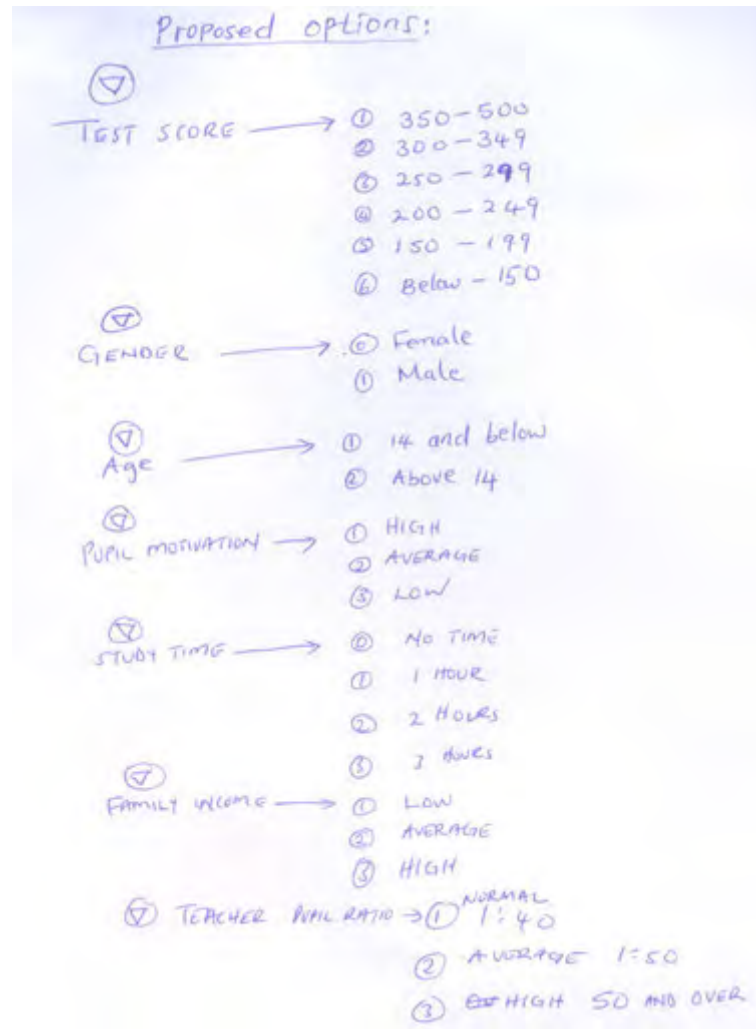 Proposed options:
TEST SCORE → ① 350-500
② 300-349
③ 250-299
④ 200-249
⑤ 150-199
⑥ Below-150
GENDER → ⓪ Female
① Male
Age → ① 14 and below
② Above 14
PUPIL MOTIVATION → ① HIGH
② AVERAGE
③ LOW
STUDY TIME → ⓪ NO TIME
① 1 HOUR
② 2 HOURS
③ 3 HOURS
FAMILY INCOME → ① LOW
② AVERAGE
③ HIGH
TEACHER PUPIL RATIO → ① NORMAL 1:40
② AVERAGE 1:50
③ HIGH 50 AND OVER